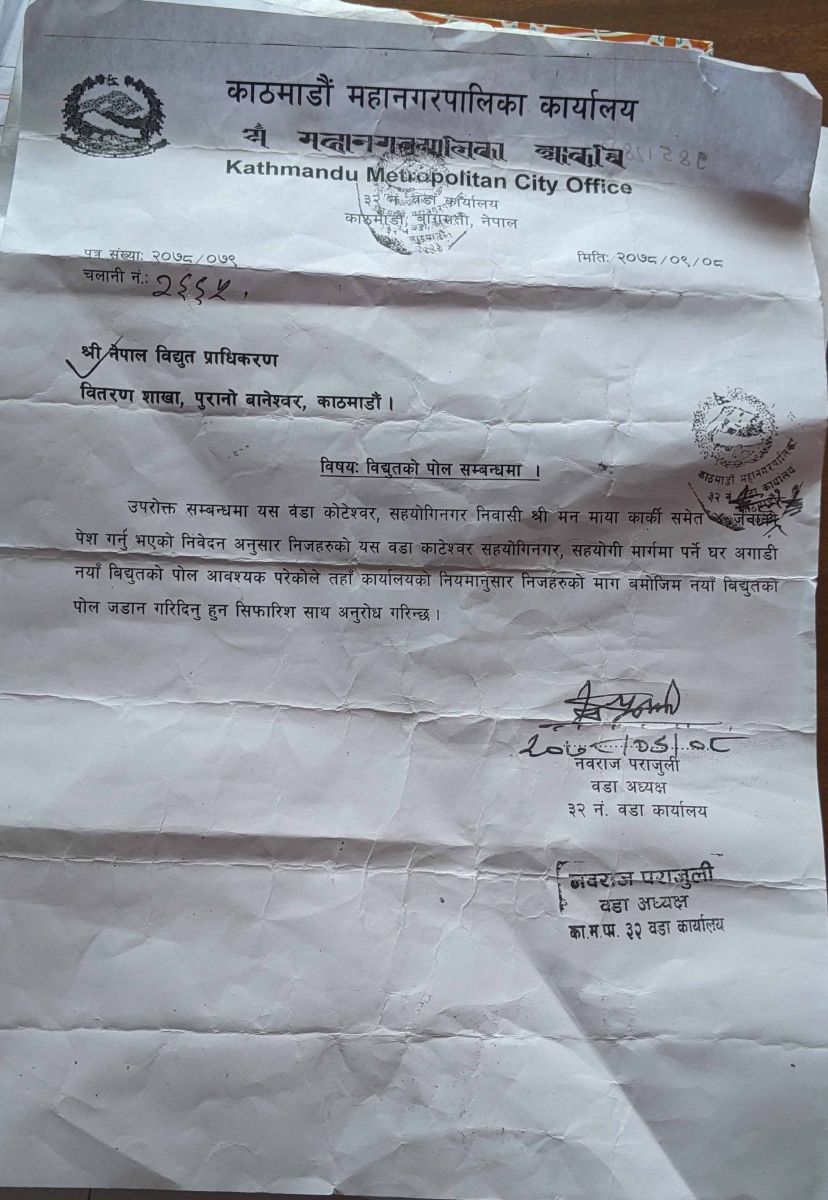 काठमाडौं महानगरपालिका कार्यालय
Kathmandu Metropolitan City Office
३२ नं. वडा कार्यालय
काठमाडौं, बागमती, नेपाल
पत्र संख्याः २०७८/०७९
मितिः २०७८/०९/०८
चलानी नं.: २६६५
श्री नेपाल विद्युत प्राधिकरण
वितरण शाखा, पुरानो बानेश्वर, काठमाडौं ।
काठमाडौं महानगरपालिका
३२ नं. कार्यालय
विषयः विद्युतको पोल सम्बन्धमा ।
उपरोक्त सम्बन्धमा यस वडा कोटेश्वर, सहयोगिनगर निवासी श्री मन माया कार्की समेत
पेश गर्नु भएको निवेदन अनुसार निजहरुको यस वडा काटेश्वर सहयोगिनगर, सहयोगी मार्गमा पर्ने घर अगाडी
नयाँ बिद्युतको पोल आवश्यक परेकोले तहाँ कार्यालयको नियमानुसार निजहरुको माग बमोजिम नयाँ बिद्युतको
पोल जडान गरिदिनु हुन सिफारिश साथ अनुरोध गरिन्छ ।
नवराज पराजुली
वडा अध्यक्ष
३२ नं. वडा कार्यालय
नवराज पराजुली
वडा अध्यक्ष
का.म.पा. ३२ वडा कार्यालय